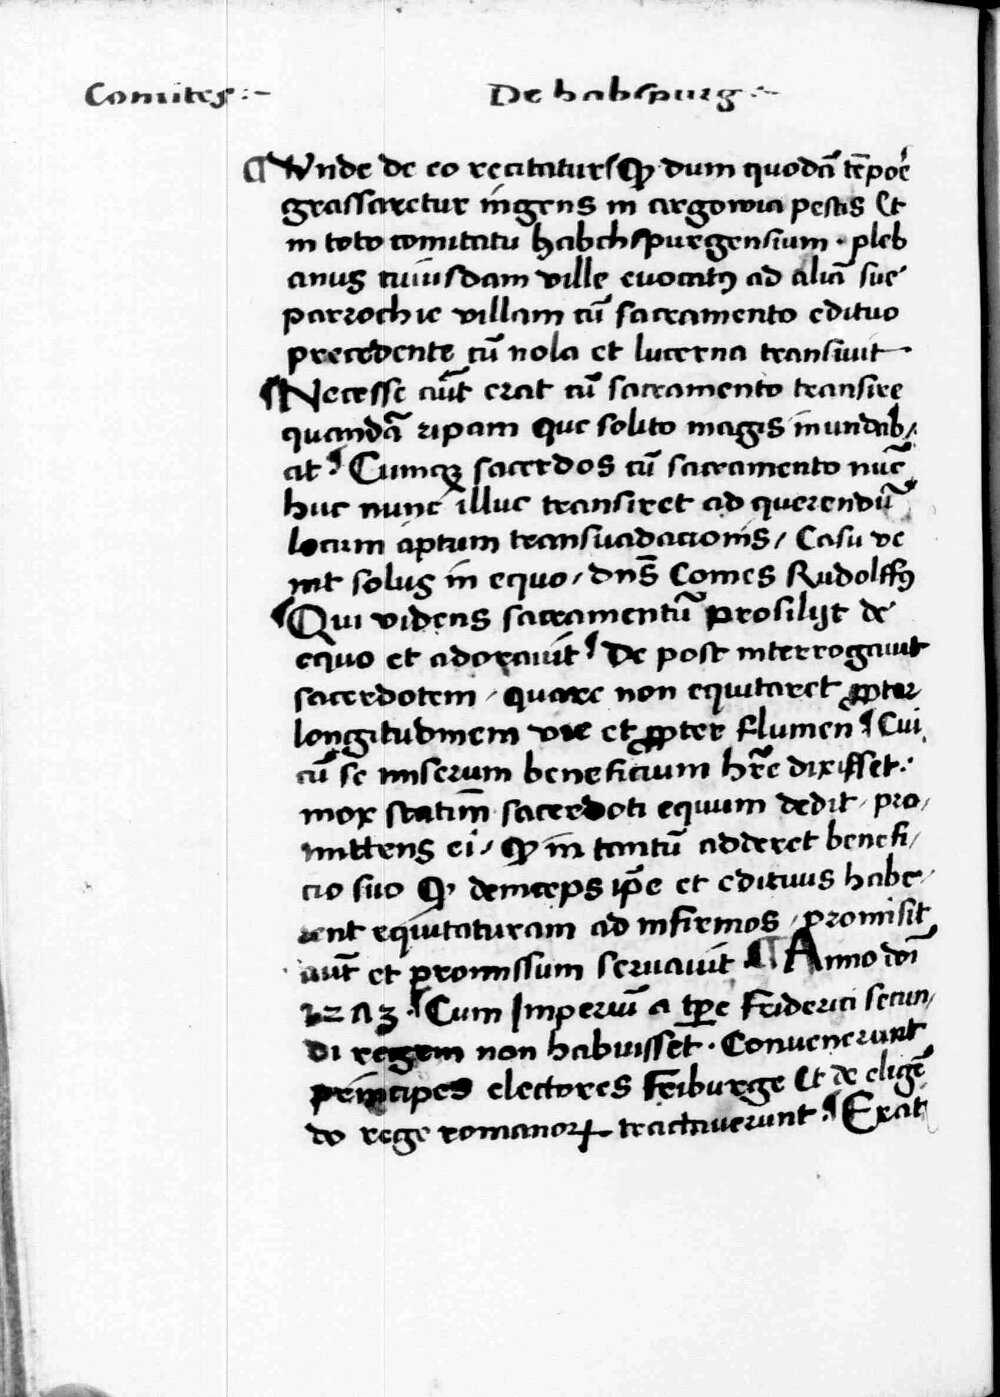 Comites :~
De habspurg :~
¶ Vnde de eo recitatur / Qp dum quodā tēpoē
grassaretur ingens in argowia pestis Et
in toto comitatu habchspurgensium · pleb
anus cuiusdam ville euocatꝰ ad aliā sue
parrochie villam cū sacramento edituo
precedente cū nola et lucerna transiuit
¶ Necesse aūt erat cū sacramento transire
quandā ripam que solito magis inundab/
at ¶ Cumqꝫ sacerdos cū sacramento nūc
huc nunc illuc transiret ad querendū
locum aptum transuadacionis / Casu ve
nit solus in equo / dns̄ Comes Rudolffꝰ
¶ Qui videns sacramentū prosilijt de
equo et adorauit ¶ De post interrogauit
sacerdotem / quare non equitaret ꝓpter
longitudinem vie et ꝓpter flumen ¶ Cui
cū se miserum beneficium hr̄e dixisset ·
mox statim sacerdoti equum dedit / pro/
mittens ei / Qp in tantū adderet benefi/
cio suo Qp deinceps ip̄e et edituus habe/
rent equitaturam ad infirmos / promisit
aūt et promissum seruauit · ¶ Anno dnī
12ʌ3 · ¶ Cum Imperiū a tp̄e Friderici secun/
di regem non habuisset · Conuenerunt
principes electores Friburge Et de eligē
do rege romanoꝝ tractauerunt ¶ Erat